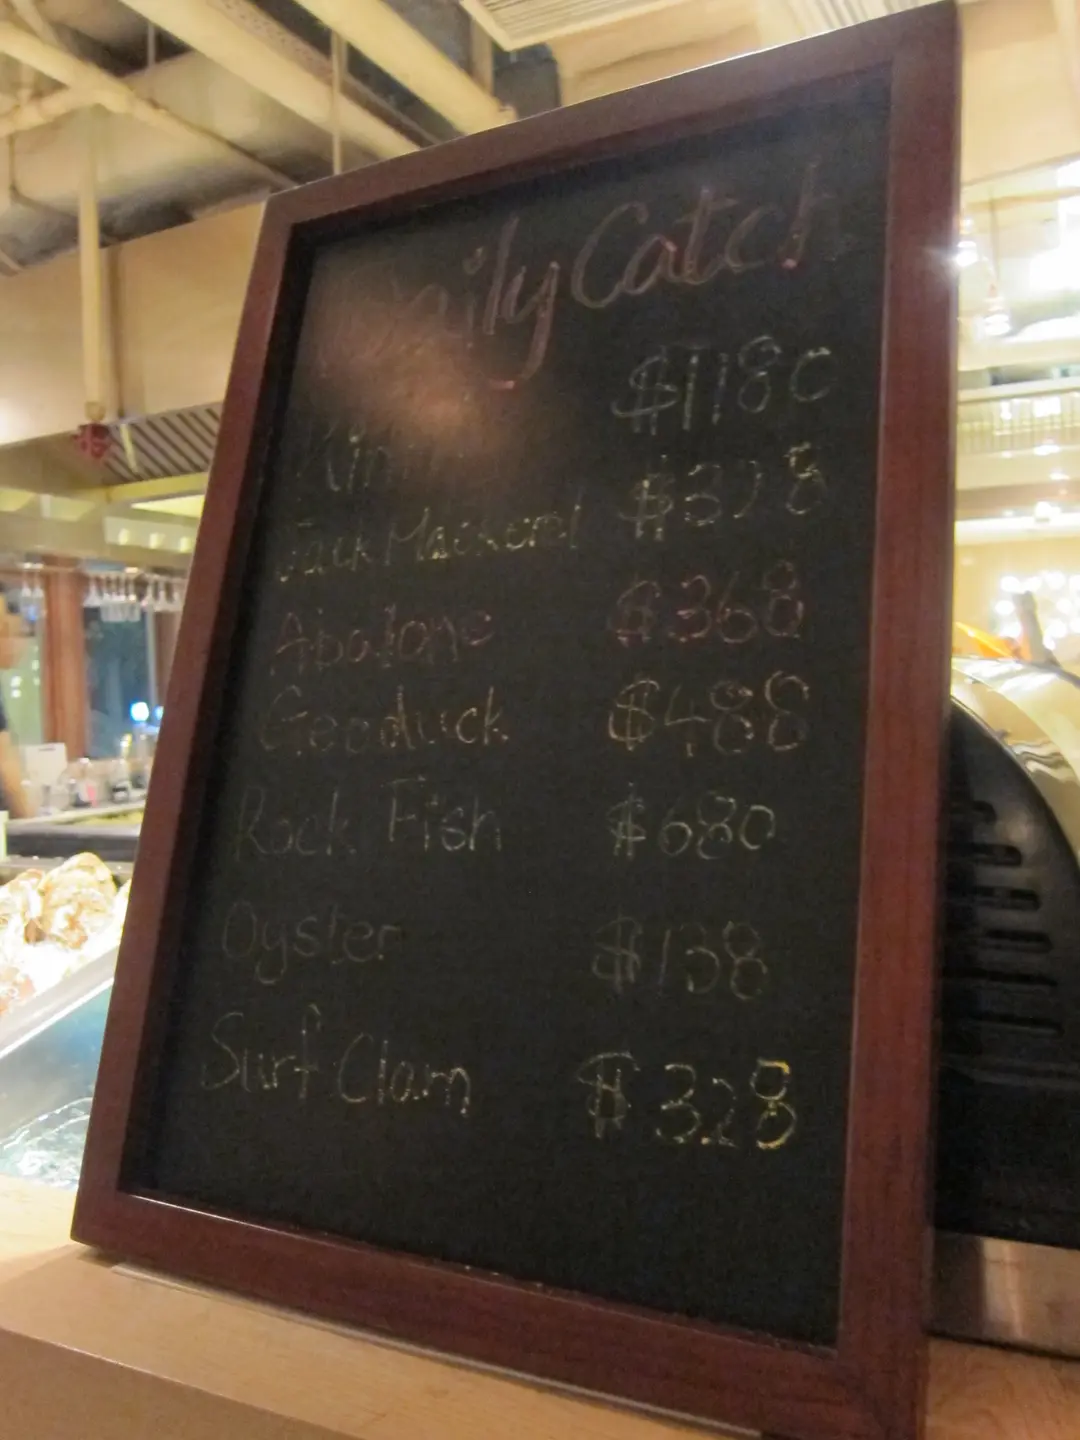 Daily Catch
$1180
Jack Mackerel $328
Abalone $368
Geoduck $488
Rock Fish $680
Oyster $138
Surf Clam $328